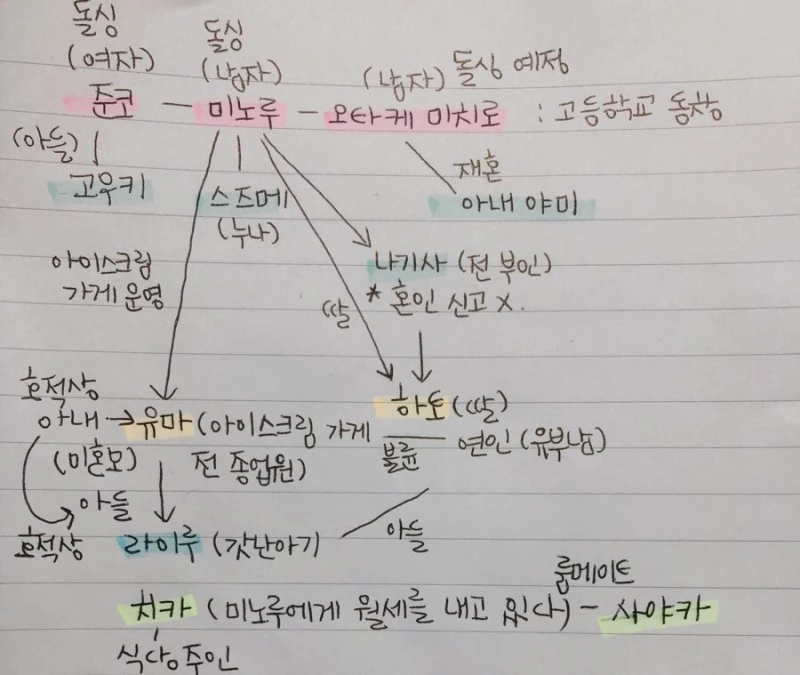 돌싱 돌싱
(여자) (남자) (남자) 돌싱 예정
준코 — 미노루 — 오타케 미치로 : 고등학교 동창
(아들) 재혼
고우키 스즈메 아내 야미
(누나)
아이스크림 나기사 (전 부인)
가게 운영 딸 * 혼인 신고 X.
호적상 하토 (딸)
아내 → 유마 (아이스크림 가게 불륜 연인 (유부남)
(미혼모) 전 종업원)
아들 아들
호적상 라이루 (갓난아기
룸메이트
치카 (미노루에게 월세를 내고 있다) — 사야카
식당 주인